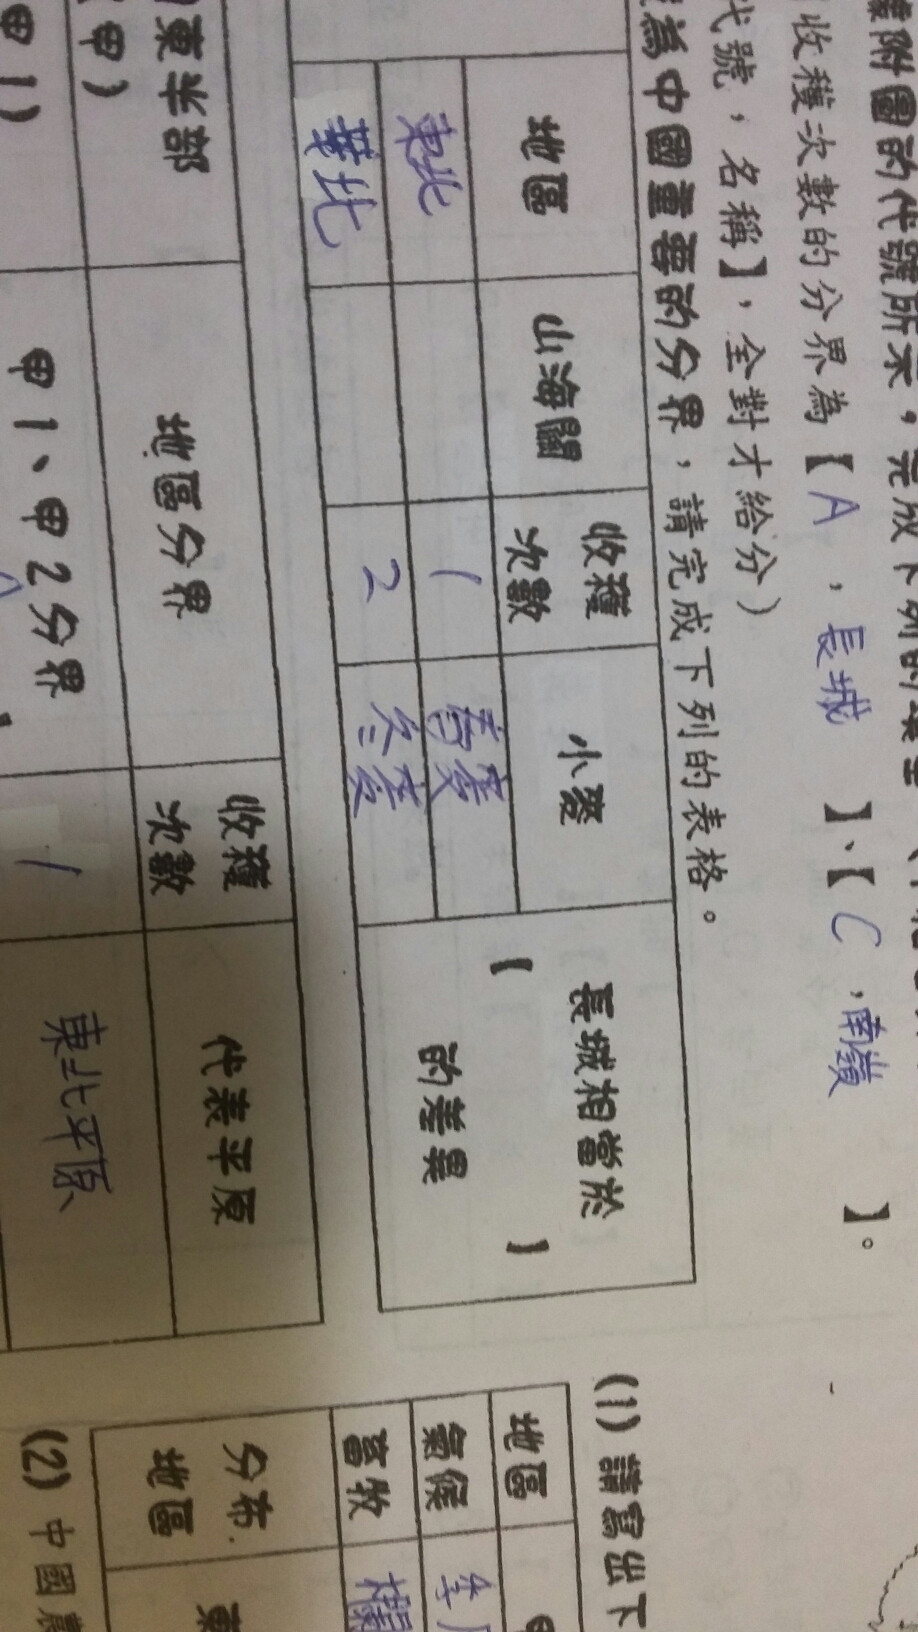 附圖的代號所示，完成下列的
收穫次數的分界為【A，長城】、【C，南嶺】。
代號，名稱】，全對才給分）
為中國重要的分界，請完成下列的表格。
地區 山海關 收穫次數 小麥 長城相當於【 】的差異
東北 1 春麥
華北 2 冬麥
東半部 地區分界 收穫次數 代表平原
甲） 甲1、甲2分界 1 東北平原
甲1）
(1) 請寫出下
地區
氣候 半
畜牧 欄
分布地區 東
(2) 中國農